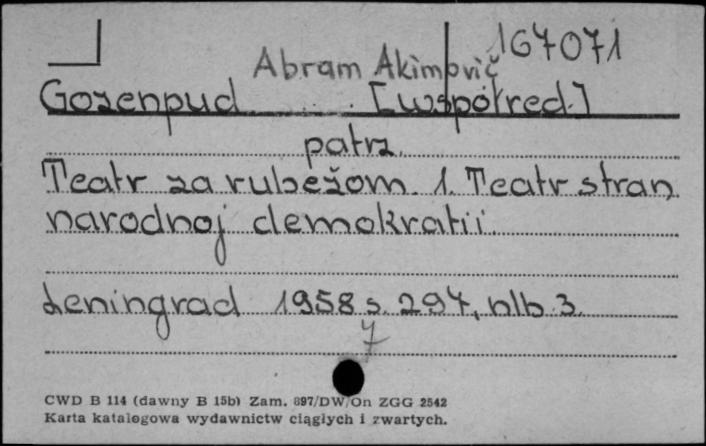 167071
Abram Akimovič
Gozenpud [współred.]
patrz
Teatr za rubežom. 1. Teatr stran
narodnoj demokratii.
Leningrad 1958 s. 297, nlb. 3.
7
CWD B 114 (dawny B 15b) Zam. 897/DW/On ZGG 2542
Karta katalogowa wydawnictw ciągłych i zwartych.